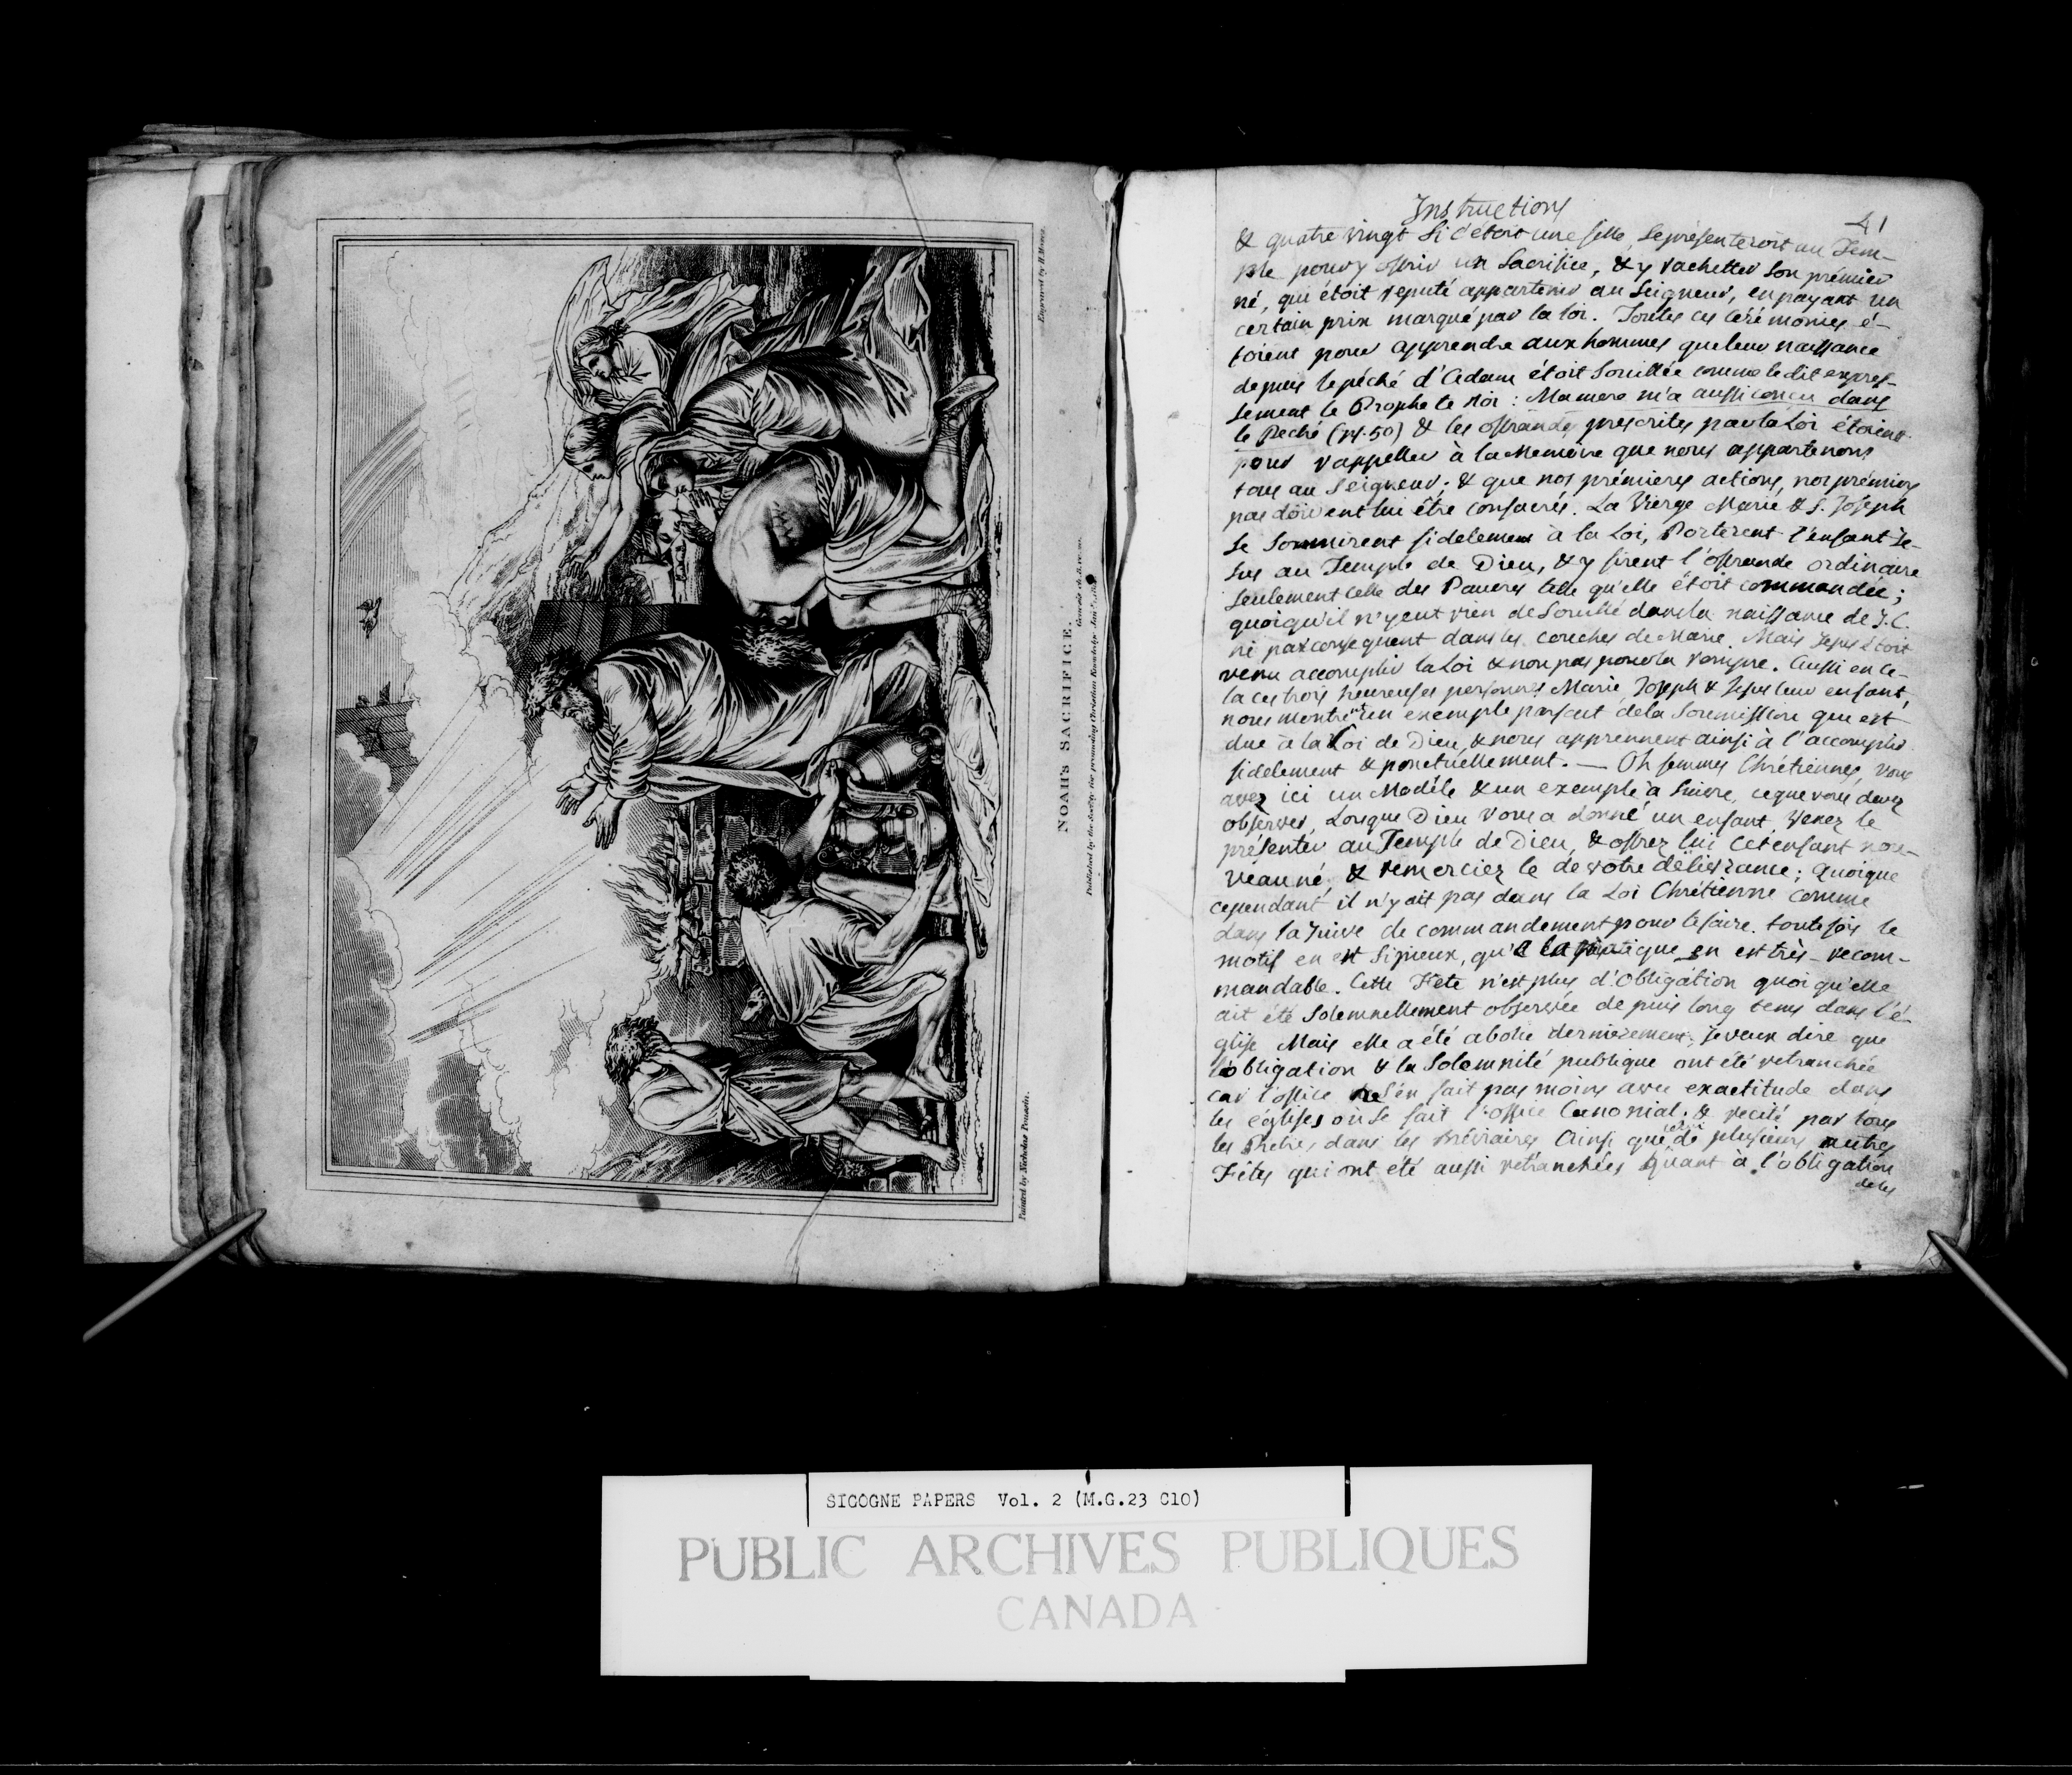 Engraved by H. Moses.
NOAH'S SACRIFICE.
Published by the Society for promoting Christian Knowledge
Painted by Nicholas Poussin.
Instructions
41
& quatre vingt si c'étoit une fille, se présenteroit au Tem-
ple pour y offrir un Sacrifice, & y rachetter son prémier
né, qui étoit reputé appartenir au Seigneur, en payant un
certain prix marqué par la loi. Toutes ces cérémonies é-
toient pour apprendre aux hommes que leur naissance
depuis le péché d'Adam étoit souillée comme le dit expres-
sement le Prophete Roi : Ma mere m'a aussi conçu dans
le Peché (ps. 50) & les offrandes prescrites par la Loi étoient
pour rappeller à la Memoire que nous appartenons
tous au Seigneur; & que nos prémieres actions, nos prémiers
pas doivent lui être consacrés. La Vierge Marie & S. Joseph
se soumirent fidelement à la Loi, Porterent l'enfant Je-
sus au Temple de Dieu, & y firent l'offrande ordinaire
seulement celle des Pauvres telle qu'elle étoit commandée;
quoiqu'il n'y eut rien de Souillé dans la naissance de J.C.
ni par consequent dans les couches de Marie. Mais Jesus étoit
venu accomplir la Loi & non pas pour la rompre. Aussi en ce-
la ces trois heureuses personnes Marie, Joseph & Jesus leur enfant,
nous montrent un exemple parfait de la Soumission que est
due à la Loi de Dieu, & nous apprennent ainsi à l'accomplir
fidelement & ponctuellement. — Oh femmes Chrétiennes, vous
avez ici un Modéle & un exemple à suivre, ce que vous devez
observer, Lorsque Dieu vous a donné un enfant venez le
présenter au Temple de Dieu, & offrez lui cet enfant nou-
veau né, & remerciez le de votre délivrance; quoique
cependant il n'y ait pas dans la Loi Chrétienne comme
dans la Juive de commandement pour le faire. toutefois le
motif en est si pieux, que la pratique en est très-recom-
mandable. Cette Fete n'est plus d'Obligation quoi qu'elle
ait été Solemnellement observée depuis long tems dans l'é-
glise Mais elle a été abolie dernierement, je veux dire que
l'obligation & la Solemnité publique ont été retranchée
car l'office ne s'en fait pas moins avec exactitude dans
les églises où se fait l'office Canonial. & recité par tous
les Prêtres dans les Bréviaires Ainsi que de plusieurs autres
Fêtes qui ont été aussi retranchées Quant à l'obligation
de les
SICOGNE PAPERS Vol. 2 (M.G.23 C10)
PUBLIC ARCHIVES PUBLIQUES
CANADA